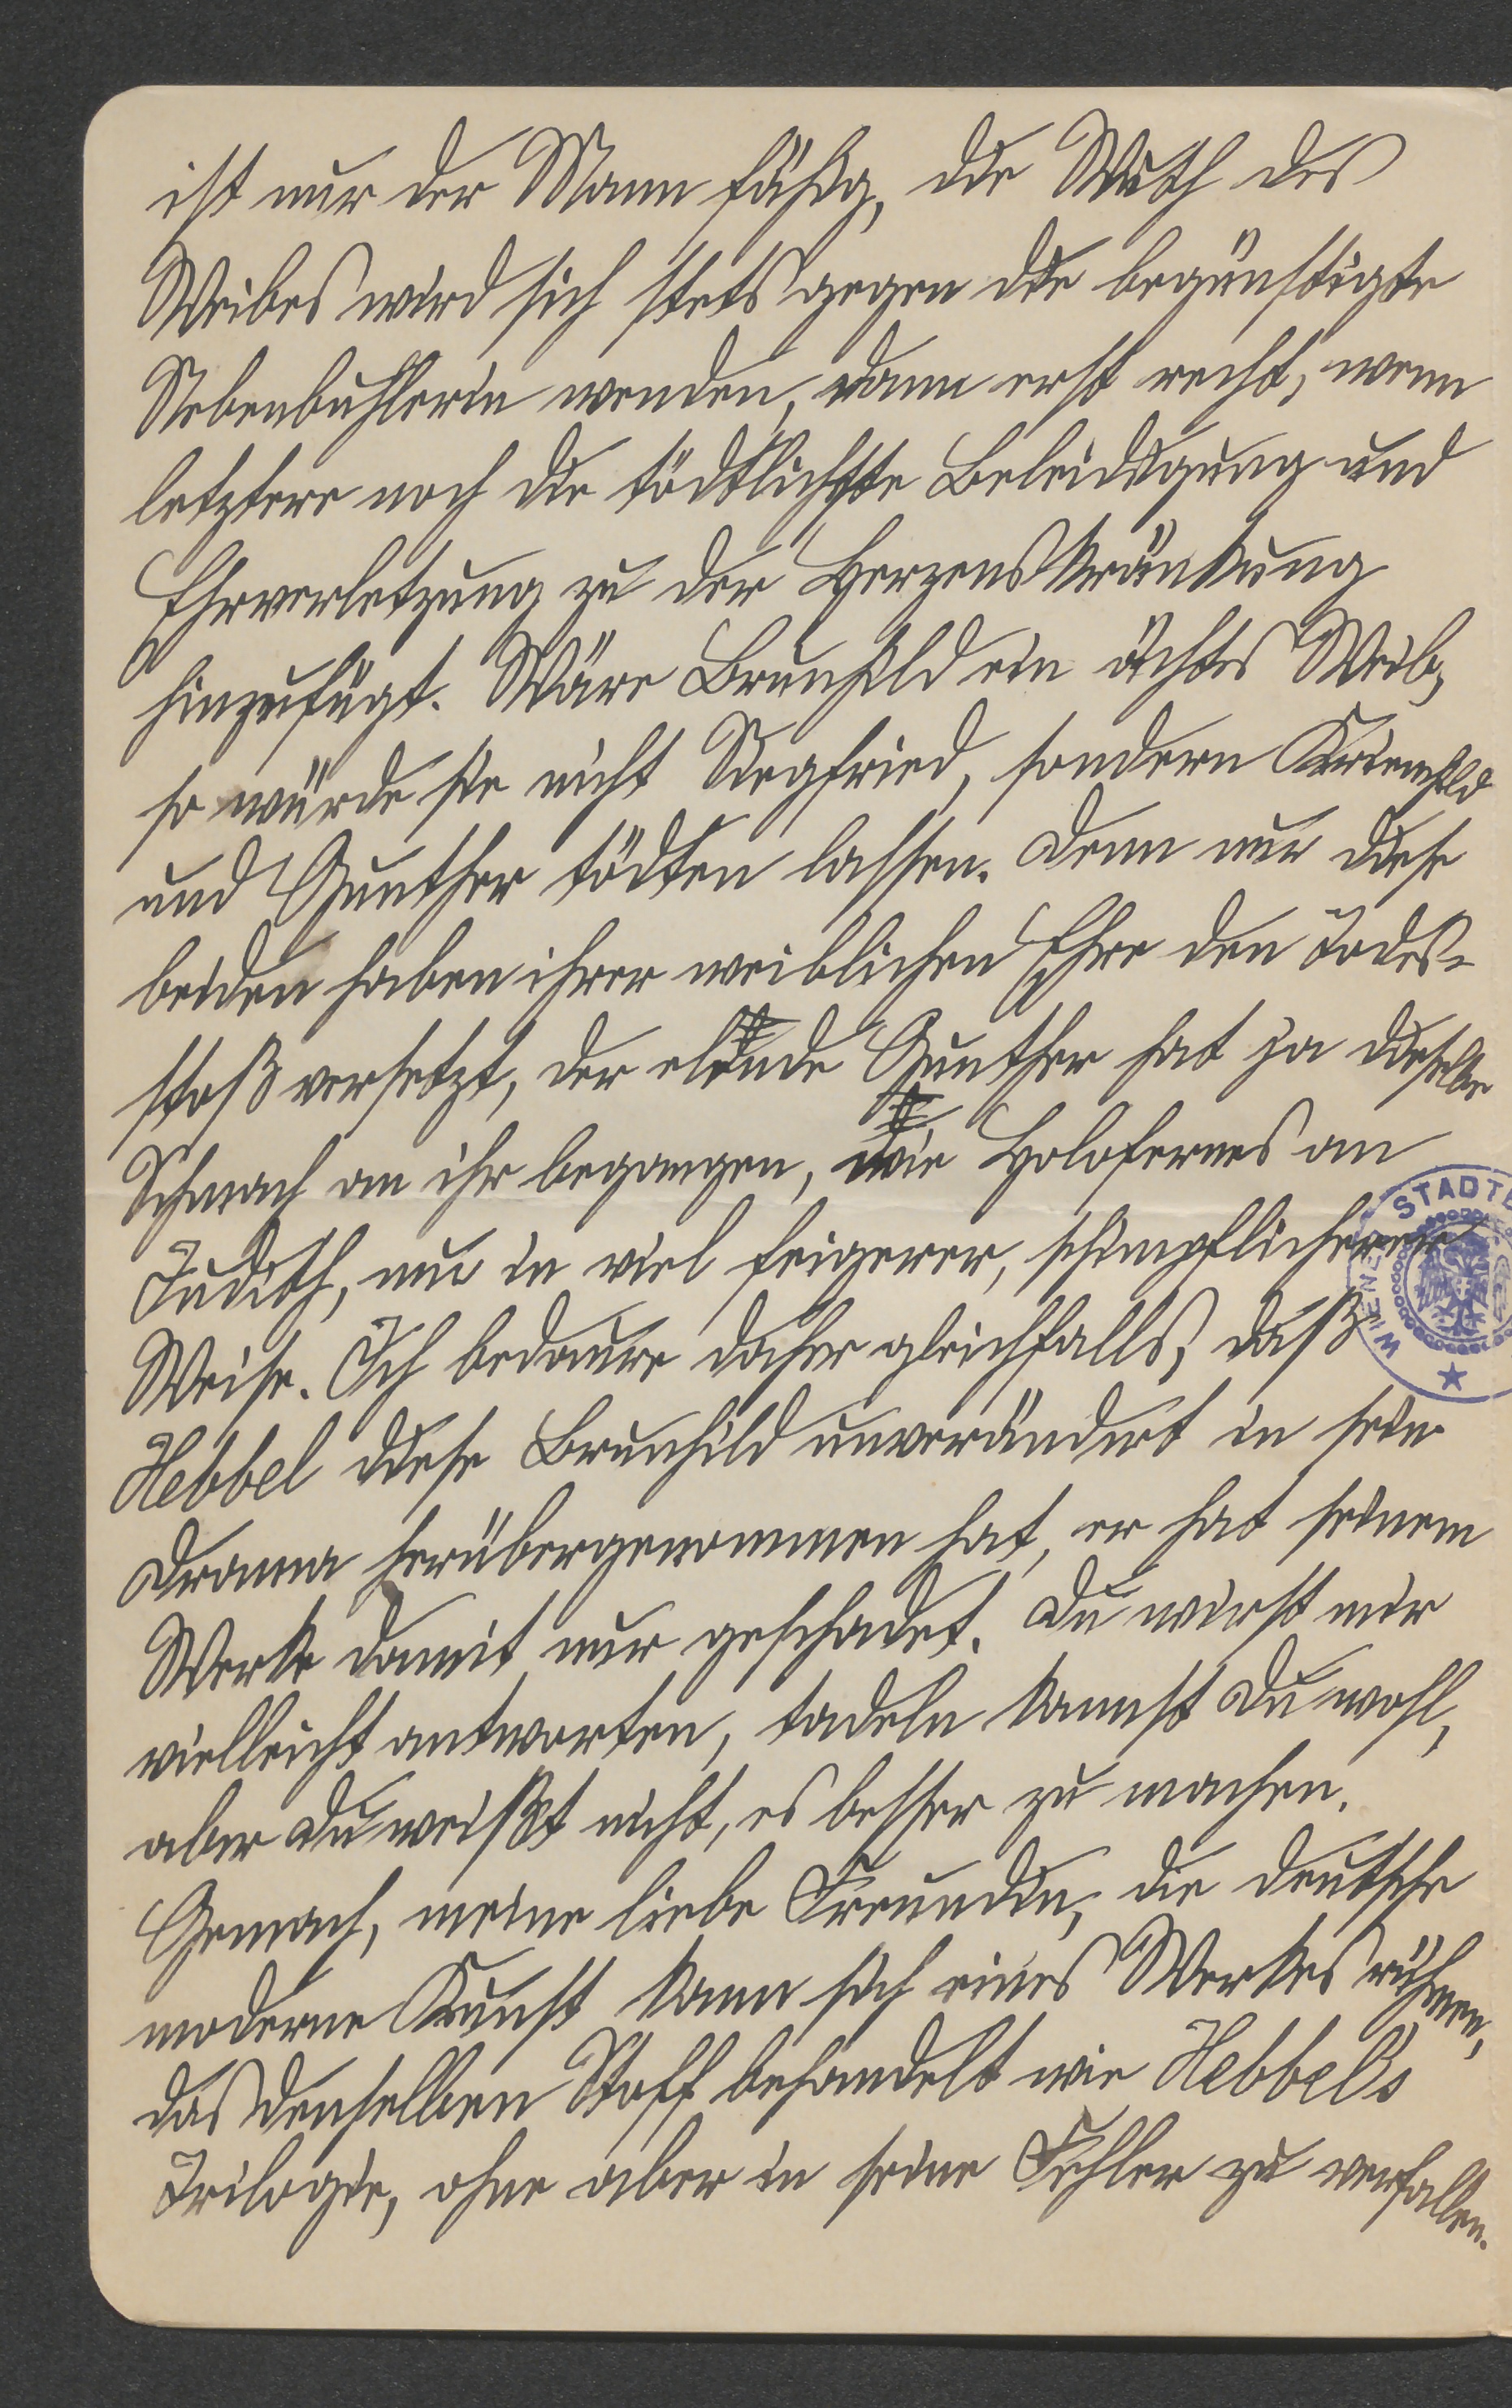 ist nur der Mann fähig, die Wuth des
Weibes wird sich stets gegen die begünstigte
Nebenbuhlerin wenden, dann erst recht, wenn
letztere noch die tödtlichste Beleidigung und
Ehrverletzung zu der Herzenskränkung
hinzufügt. Wäre Brunhild ein ächtes Weib,
so würde sie nicht Siegfried, sondern Kriemhild
und Gunther tödten lassen. Denn nur diese
beiden haben ihrer weiblichen Ehre den Todes-
stoß versetzt, der elende Gunther hat ja dieselbe
Schmach an ihr begangen, wie Holofernes an
Judith, nur in viel feigerer, schimpflicherer
Weise. Ich bedaure daher gleichfalls, daß
Hebbel diese Brunhild unverändert in sein
Drama herübergenommen hat, er hat seinem
Werke damit nur geschadet. Du wirst mir
vielleicht antworten, tadeln kannst Du wohl,
aber Du weißt nicht, es besser zu machen.
Gemach, meine liebe Freundin, die deutsche
moderne Kunst kann sich eines Werkes rühmen,
das denselben Stoff behandelt wie Hebbel's
Trilogie, ohne aber in seine Fehler zu verfallen.
WIENER STADT